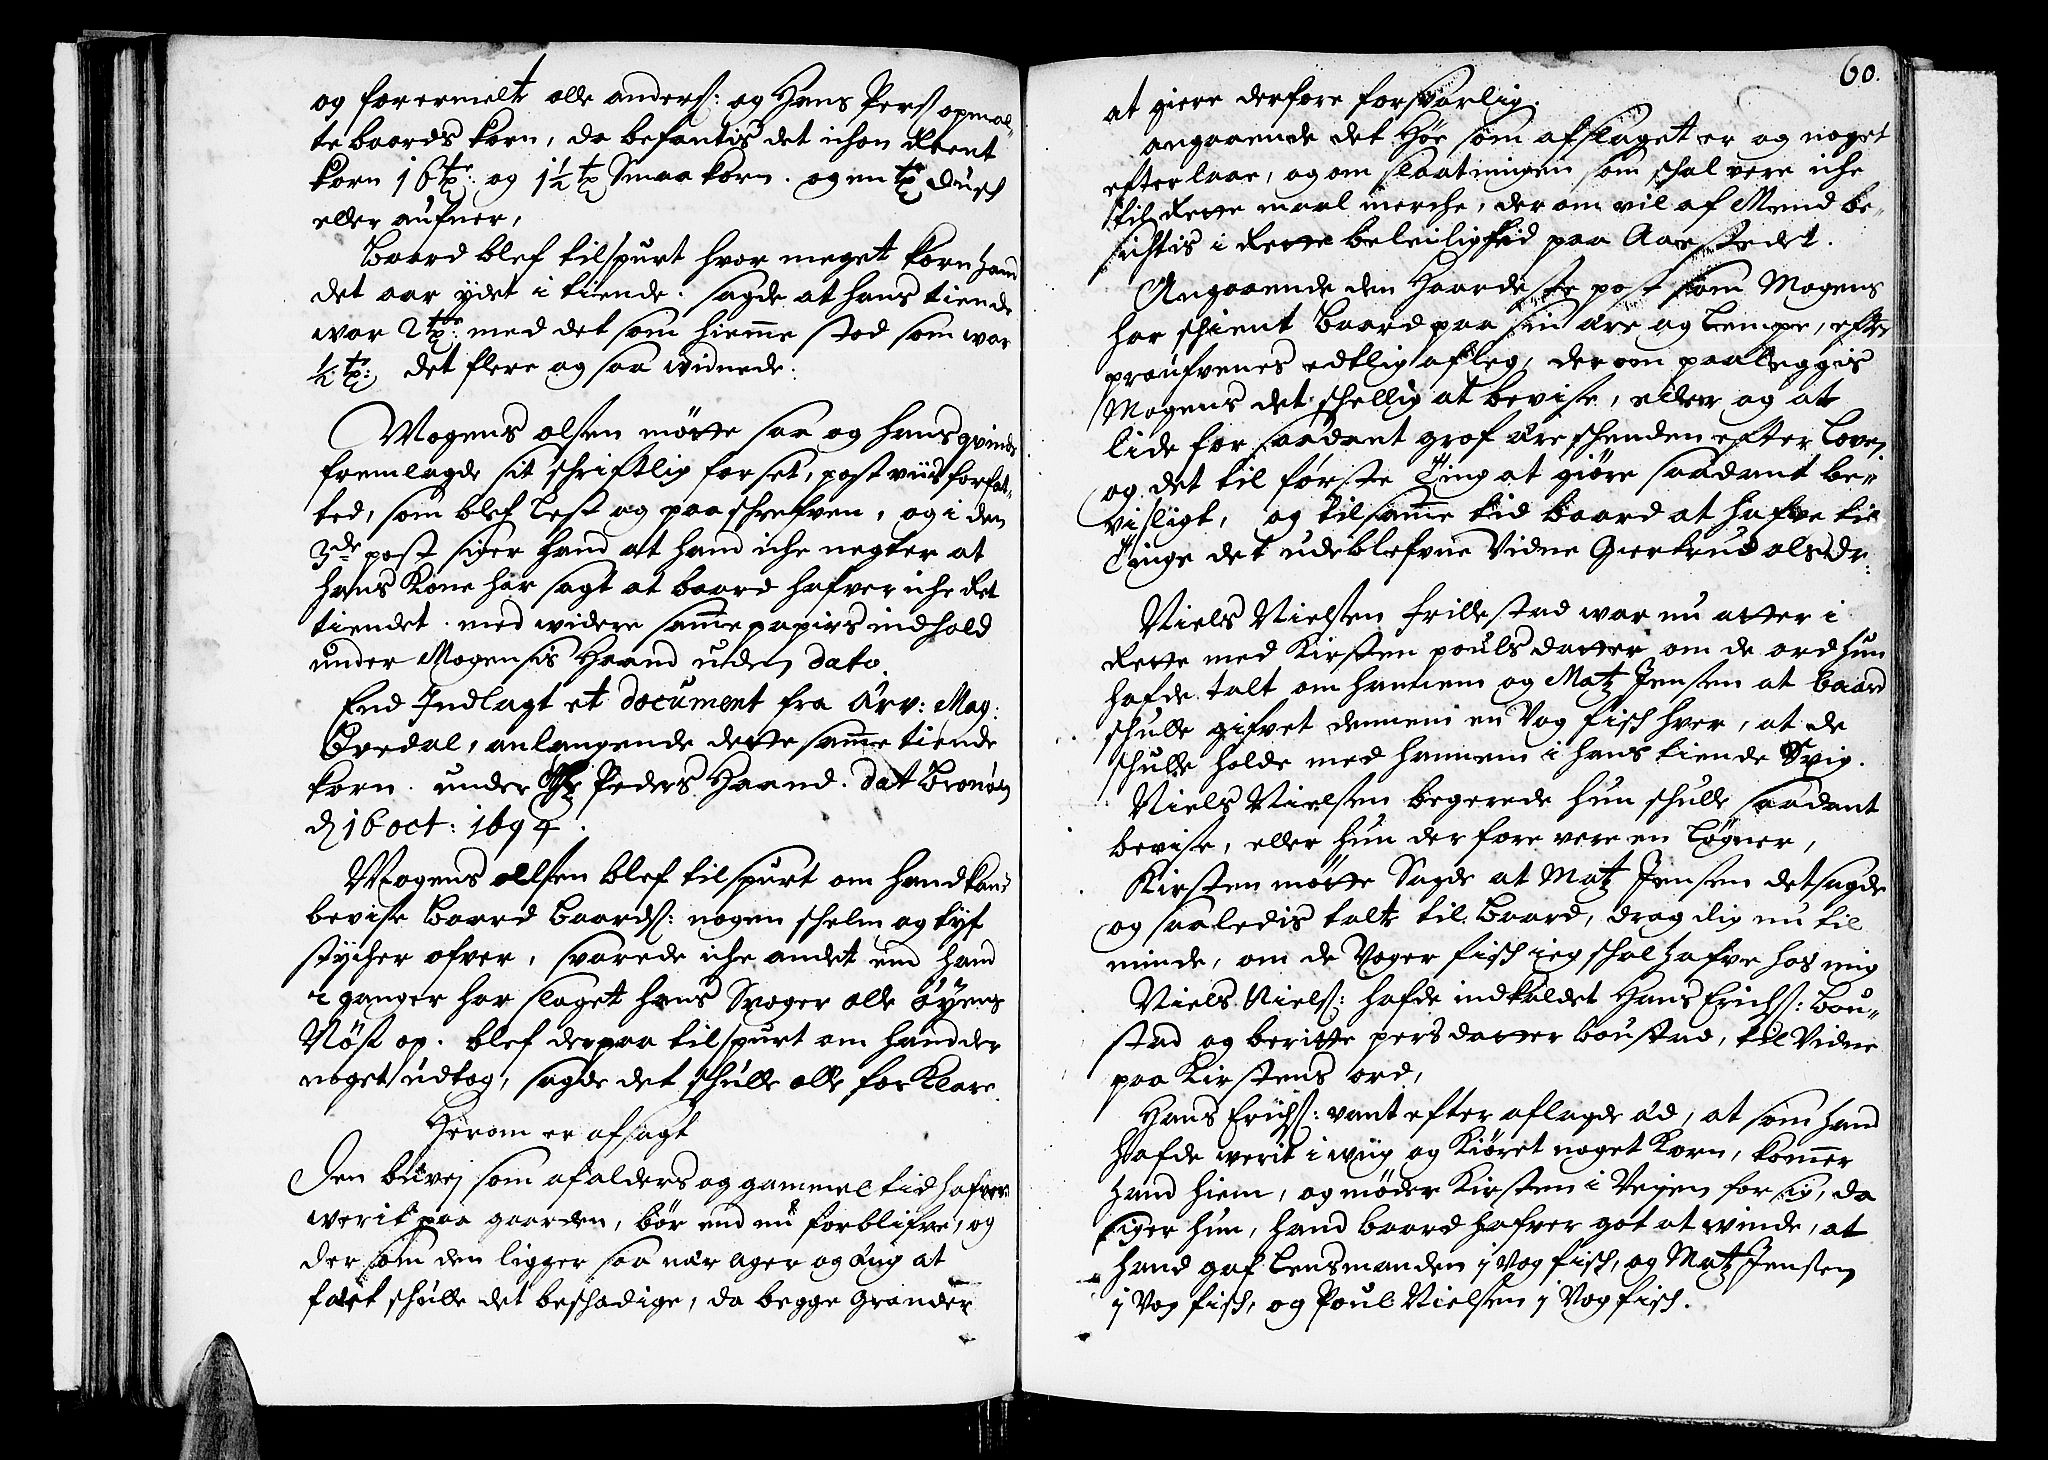 og forermelte olle anders: og Hans Pers: opmol-
te baards korn, da befantis det ichon Reent
korn 16 tr: og 1½ tr Smaa korn. og en tr dusch
eller aufner,
Baard blef tilspurt hvor meget korn hand
det aar ydet i tiende. sagde at hans tiende
war 2 tr: med det som hieme stod som war
½ tr: det flere og saa widnede.
Mogens olsen mötte saa og hans qvinde
fremlagde sit schriftlig forset, post viis forfat-
ted, som blef lest og paaschrefven, og i den
3de post siger hand at hand iche negter at
hans Kone har sagt at baard hafver iche Ret
tiendet. med widere same papirs indhold
under Mogensis Haand uden dato.
End Indlagt et document fra Ærv: Mag:
Ørredal, anlangende dette same tiende
korn. under Hr Peders Haand. dat Bronöe
d 16 oct: 1694.
Mogens ollsen blef tilspurt om hand kand
bevise Baard Baards: nogen schelm og tyf
stycher ofver, svarede iche andet end hand
2 ganger har slaget hans Svoger olle öyens
Nöst op. blef derpaa tilspurt om hand der
noget udtog, sagde det schulle olle forklare.
Herom er afsagt
Den buvej som af alders og gammel tid hafver
werit paa gaarden, bör end nu forblifve, og
der som den ligger saa nær ager og Eng at
fæet schulle det beschadige, da begge Grander
60.
at giere derfore forsvarlig.
angaaende det Höe som afslaget er og noget
efterlaae, og om slaatningen som schal vere iche
til Rette maal merche, der om vil af Mend be-
sichtis i Rette beleilighed paa Aastedet.
Angaaende den Haardeste post som Mogens
har schient Baard paa sin ære og Lempe, efter
proufvenes edtlig afleg, derom paaleggis
Mogens det schellig at bevise, eller og at
lide for saadant grof æreschenden efter loven
og det til förste Ting at giöre saadant be-
visligt, og til same tid baard at hafve til
Tinge det udeblefvne Vidne Giertrud olsdr:
Niels Nielsen Trillestad war nu atter i
Rette med Kirsten pouls datter om de ord hun
hafde talt om hannem og Matz Jensen at baard
schulle gifvet dennem en Vog fisch hver, at de
schulle holde med hannem i hans tiende Svig.
Niels Nielsen begerede hun schulle saadant
bevise, eller hun derfore vere en Løgner,
Kirsten mötte Sagde at Matz Jensen det sagde
og saaledis talte til Baard, drag dig nu til
minde, om de Voger fisch ieg schal hafve hos mig
Niels Niels: hafde indkaldet Hans Erichs: Bou-
stad og beritte pers datter boustad, til Vidne
paa Kirstens ord,
Hans Erichs: vant efter aflagde æd, at som hand
hafde werit i wiig og Kiöret noget Korn, komer
hand hiem, og möder Kirsten i Veyen for sig, da
siger hun, hand baard hafver got at winde, at
hand gaf lensmanden j Vog fisch, og Matz Jensen
j Vog fisch, og Poul Nielsen j Vog fisch.